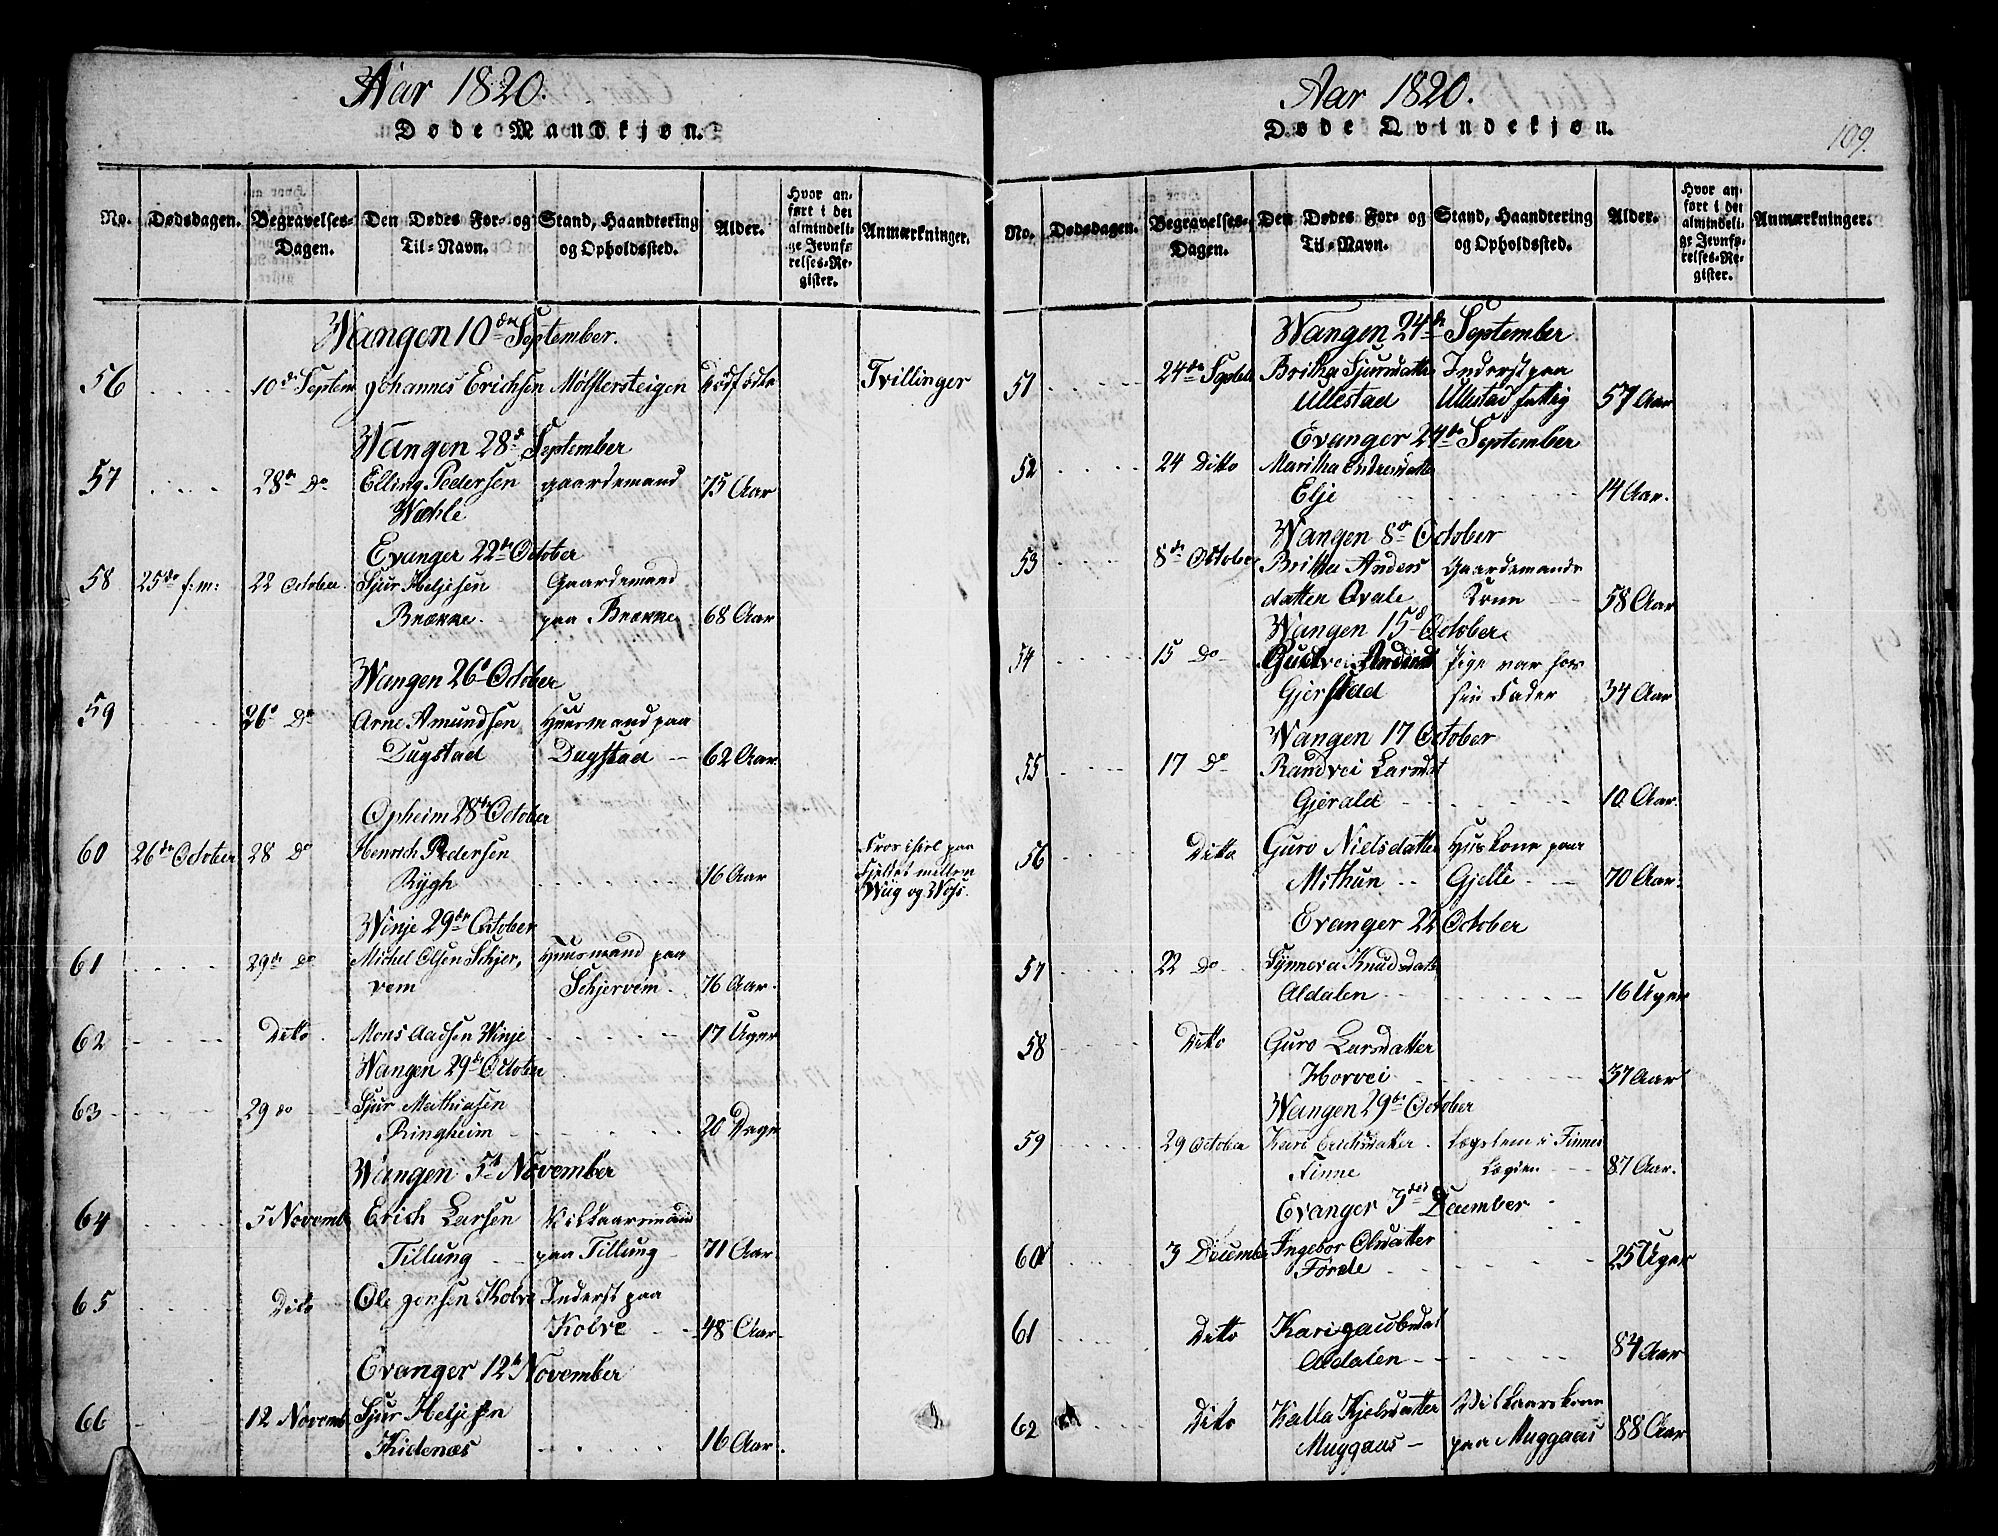 Aar 1820.
Døde Mandkjøn.
No. Dødsdagen. Begravelses-Dagen. Den Dødes For- og Til-Navn. Stand, Haandtering og Opholdssted. Alder. Hvor anført i det almindelige Jevnførelses-Register. Anmærkninger.
Wangen 10de September.
56 10de Septem Johannes Erichsen Mølstersteigen Dødfødte Tvillinger
Wangen 28d September
57 28de Do Elling Pedersen gaardemand 75 Aar
Wæhle
Evanger 22de October
58 25de f:m: 22 October. Sjur Heljesen Gaardemand
Brække. paa Brække 68 Aar
Wangen 26d October
59 26d Do Arne Amundsen Huusmand paa
Dugstad Dugstad 62 Aar
Opheim 28de October
60 26de October 28 Do Henrich Pedersen
Rygh 16 Aar Fjeldet mellem
Wiig og Wofs.
Winje 29de October
61 29de Do Michel Olsen Schjer, Huusmand paa
vem Schjervem 76 Aar.
62 Ditto Mons Aadsen Winje 17 Uger
Wangen 29de October
63 29 do Sjur Mathiasen
Ringheim 20 Dage
Wangen 5t November
64 5 Novemb Erich Larsen Vilkaarsmand
Tillung paa Tillung 71 Aar
65 Ditto Ole Jonsen Kolve Inderst paa
Kolve 48 Aar
Evanger 12t November
66 12 Novemb Sjur Heljesen
Kidenæs 16 Aar.
Aar 1820.
Døde Qvindekjøn.
109.
No. Dødsdagen. Begravelses-Dagen. Den Dødes For- og Til-Navn. Stand, Haandtering og Opholdssted. Alder. Hvor anført i det almindelige Jevnførelses-Register. Anmærkninger.
Wangen 24de September
51 24de Septbr Britha Sjursdatter Inderst paa
Ullestad Ullestad fattig 57 Aar
Evanger 24de September
52 24 Ditto Maritha Endresdatter
Elje 14 Aar.
Wangen 8de October
53 8de October Britta Anders Gaardemands
datter Qvale Kone 58 Aar
Wangen 15d October
54 15 Do Pige var hos
Gjerstad sin Fader 34 Aar
Wangen 17 October
55 17 Do Randvei Larsdat
Gjerald 10 Aar.
56 Ditto Guro Nielsdatter Huskone paa
Mithun Gjelle 70 Aar.
Evanger 22 October
57 22 Do Synneva Knudsdatr
Aldalen 16 Uger
58 Ditto Guro Larsdatter
Horvei 37 Aar
Wangen 29de October
59 29 October Kari Erichsdatter Lægslem i Finne
Finne Lægden 87 Aar.
Evanger 3die December
60 3 December Ingebor Olsdatter
Førde 25 Uger
61 Ditto Kari Jacobsdat
Aldalen 84 Aar
62 Ditto Kalla Kjelsdatter Vilkaarskone
Muggaas paa Muggaas 88 Aar